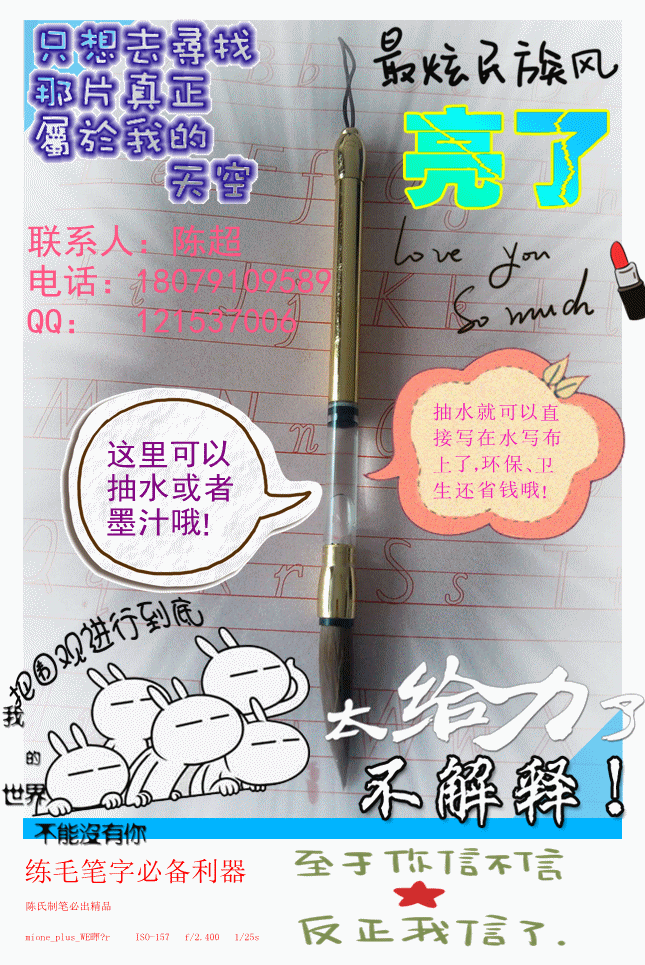 只想去尋找
那片真正
屬於我的
天空
最炫民族风
亮了
Love you
So much
联系人：陈超
电话：18079109589
QQ： 121537006
抽水就可以直
接写在水写布
上了,环保、卫
生还省钱哦!
这里可以
抽水或者
墨汁哦!
把围观进行到底
我
的
世界
不能沒有你
太给力了
不解释！
练毛笔字必备利器
陈氏制笔必出精品
至于你信不信
反正我信了.
ISO-157 f/2.400 1/25s